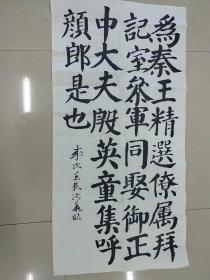 為秦王精選僚属拜
記室叅軍同娶御正
中大夫殷英童集呼
顏郎是也